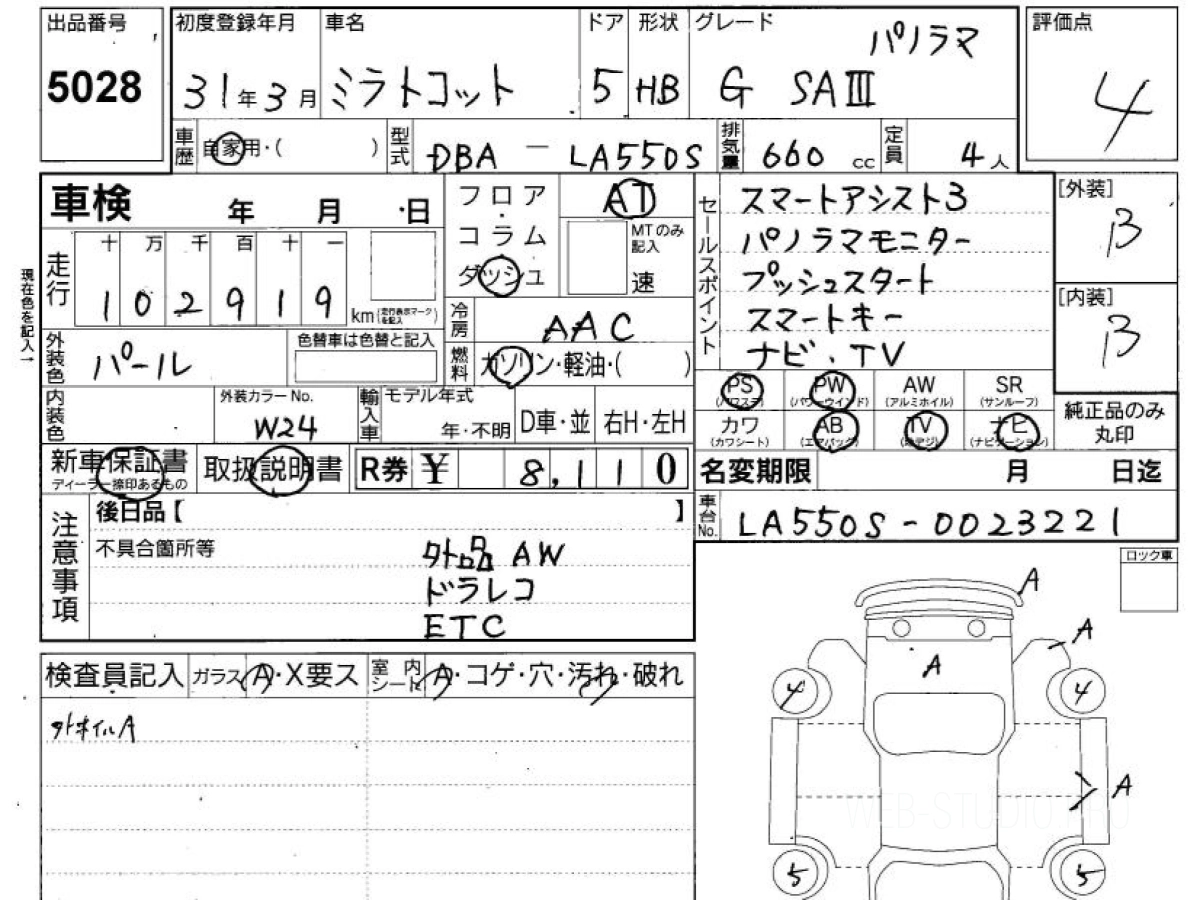 出品番号
5028
初度登録年月
31年3月
車名
ミラトコット
ドア
5
形状
HB
グレード
パノラマ
G SAⅢ
評価点
4
車歴
自家用・( )
型式
DBA - LA550S
排気量
660 cc
定員
4人
車検 年 月 日
現在色を記入→
走行
十 万 千 百 十 一
1 0 2 9 1 9
km(走行表示マークを記入)
フロア・コラム
ダッシュ
AT
MTのみ記入
速
冷房
AAC
燃料
ガソリン・軽油・( )
セールスポイント
スマートアシスト3
パノラマモニター
プッシュスタート
スマートキー
ナビ・TV
[外装]
B
[内装]
B
外装色
パール
色替車は色替と記入
内装色
外装カラーNo.
W24
輸入車
モデル年式
年・不明
D車・並
右H・左H
PS
(パワステ)
PW
(パワーウインド)
AW
(アルミホイル)
SR
(サンルーフ)
カワ
(カワシート)
AB
(エアバッグ)
TV
(地デジ)
ナビ
(ナビゲーション)
純正品のみ
丸印
新車保証書
ディーラー捺印あるもの
取扱説明書
R券 ¥ 8,110
名変期限 月 日迄
車台No.
LA550S-0023221
注意事項
後日品【 】
不具合箇所等
外品 AW
ドラレコ
ETC
ロック車
検査員記入
ガラス A・X要ス
室内シート A・コゲ・穴・汚れ・破れ
外ホイルA
A
A
A
4
4
A
5
5
WEB-STUDIO.PRO